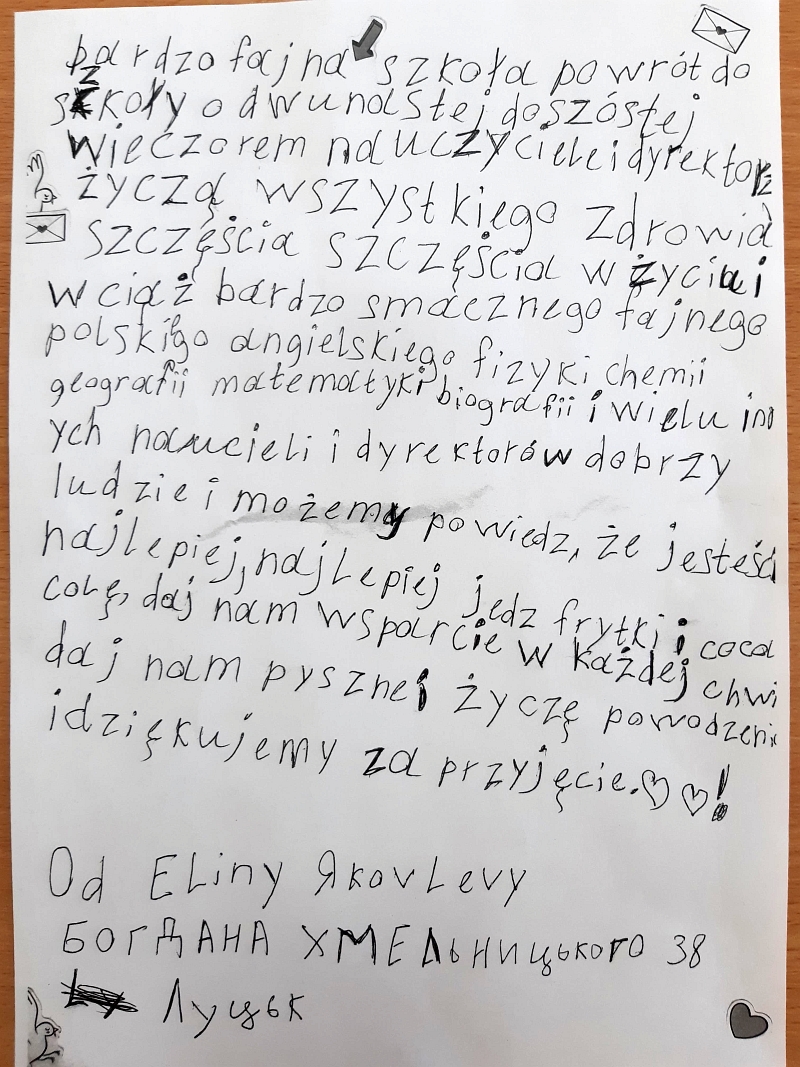 bardzo fajna szkoła powrót do
szkoły o dwunastej do szóstej
wieczorem nauczyciele i dyrektorz
życzą wszystkiego zdrowia
szczęścia szczęścia w życiu i
wciąż bardzo smacznego fajnego
polskigo angielskiego fizyki chemii
geografii matematyki biografii i wielu inn
ych naucieli i dyrektorów dobrzy
ludzie i możemy powiedz, że jesteści
najlepiej, najlepiej jedz frytki i coca
colę, daj nam wsparcie w każdej chwi
daj nam pysznej życzę powodzeni
i dziękujemy za przyjęcie. ♡ ♡ !
Od Eliny Яkovlevy
БОГДАНА ХМЕЛЬНИЦЬКОГО 38
Луцьк